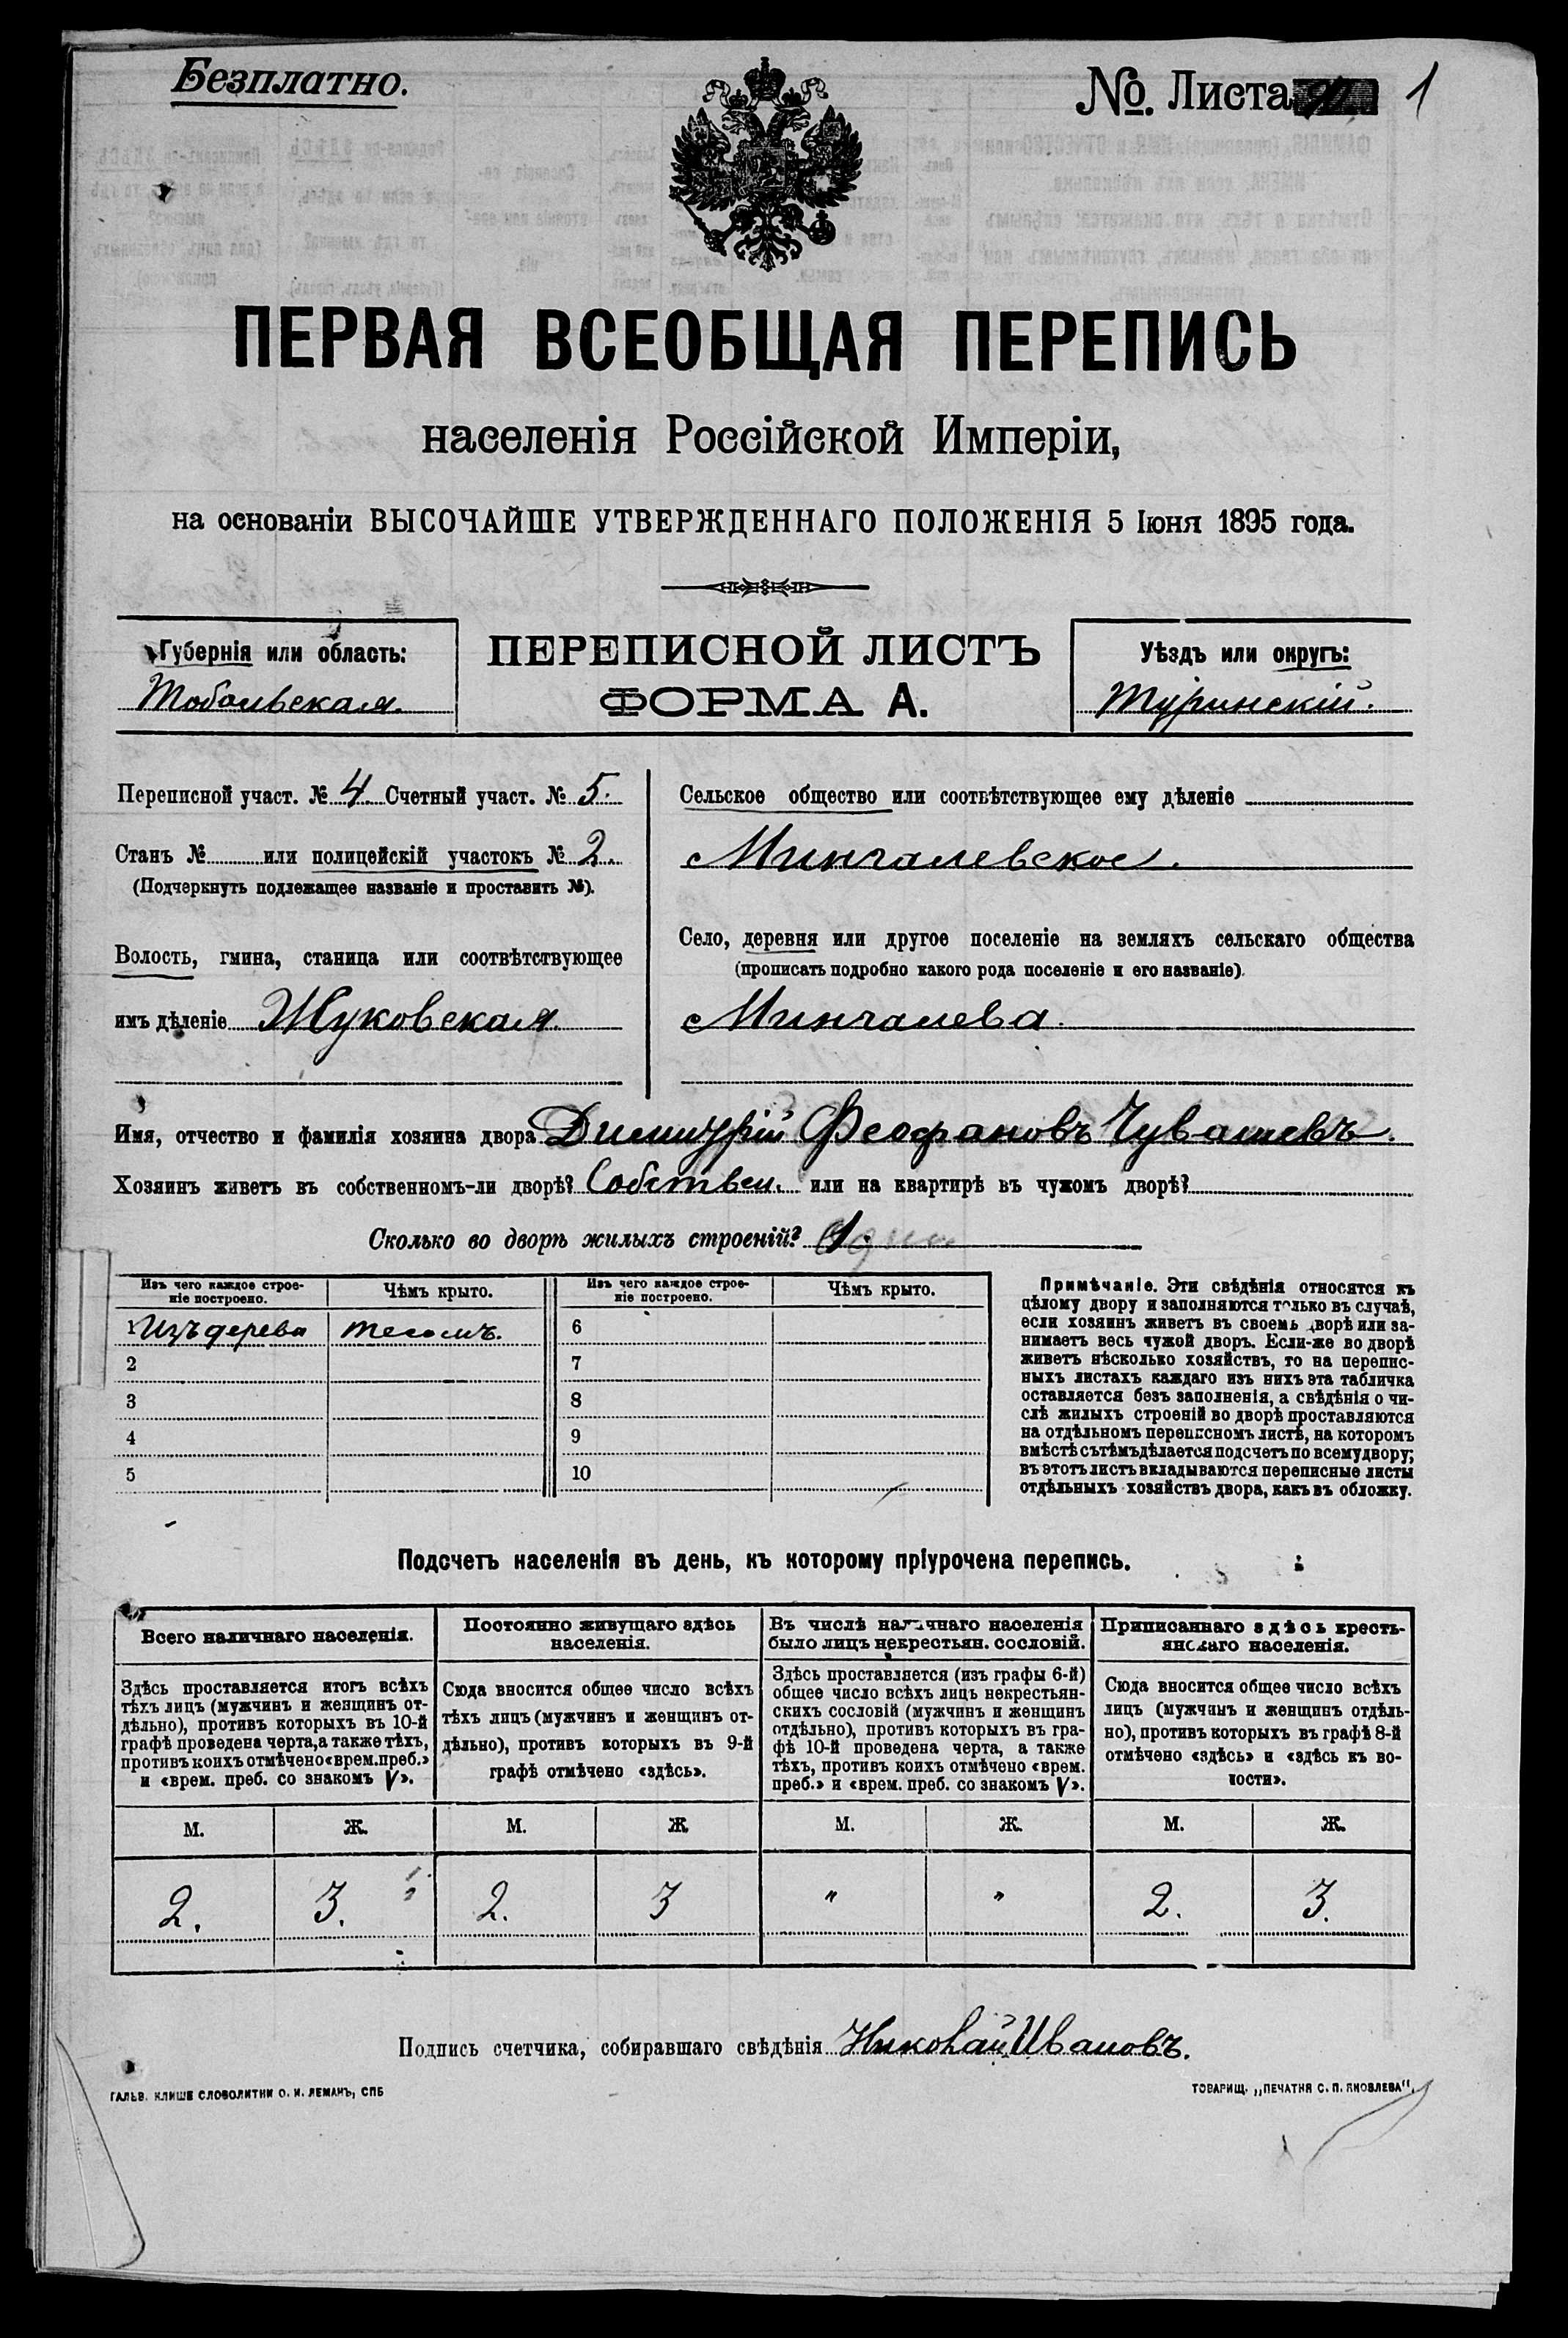 Безплатно.
№. Листа 1
ПЕРВАЯ ВСЕОБЩАЯ ПЕРЕПИСЬ
населенія Россійской Имперіи,
на основаніи ВЫСОЧАЙШЕ УТВЕРЖДЕННАГО ПОЛОЖЕНІЯ 5 Іюня 1895 года.
Губернія или область:
Тобольская.
ПЕРЕПИСНОЙ ЛИСТЪ
ФОРМА А.
Уѣздъ или округъ:
Туринскій.
Переписной участ. № 4 Счетный участ. № 5.
Станъ № или полицейскій участокъ № 2.
(Подчеркнуть подлежащее названіе и проставить №).
Волость, гмина, станица или соотвѣтствующее
имъ дѣленіе Жуковская.
Сельское общество или соотвѣтствующее ему дѣленіе
Минчалевское.
Село, деревня или другое поселеніе на земляхъ сельскаго общества
(прописать подробно какого рода поселеніе и его названіе).
Минчалева.
Имя, отчество и фамилія хозяина двора Димитрій Феофановъ Чувашевъ.
Хозяинъ живетъ въ собственномъ-ли дворѣ? Собствен. или на квартирѣ въ чужомъ дворѣ?
Сколько во дворѣ жилыхъ строеній? 1.
Изъ чего каждое строе-
ніе построено.
Чѣмъ крыто.
Изъ чего каждое строе-
ніе построено.
Чѣмъ крыто.
1 Изъ дерева тесомъ. 6
2 7
3 8
4 9
5 10
Примѣчаніе. Эти свѣдѣнія относятся къ
цѣлому двору и заполняются только въ случаѣ,
если хозяинъ живетъ въ своемъ дворѣ или за-
нимаетъ весь чужой дворъ. Если-же во дворѣ
живетъ нѣсколько хозяйствъ, то на перепис-
ныхъ листахъ каждаго изъ нихъ эта табличка
оставляется безъ заполненія, а свѣдѣнія о чи-
слѣ жилыхъ строеній во дворѣ проставляются
на отдѣльномъ переписномъ листѣ, на которомъ
вмѣстѣ съ тѣмъ дѣлается подсчетъ по всему двору;
въ этотъ листъ вкладываются переписные листы
отдѣльныхъ хозяйствъ двора, какъ въ обложку.
Подсчетъ населенія въ день, къ которому пріурочена перепись.
Всего наличнаго населенія.
Здѣсь проставляется итогъ всѣхъ
тѣхъ лицъ (мужчинъ и женщинъ от-
дѣльно), противъ которыхъ въ 10-й
графѣ проведена черта, а также тѣхъ,
противъ коихъ отмѣчено «врем. преб.»
и «врем. преб. со знакомъ V».
Постоянно живущаго здѣсь
населенія.
Сюда вносится общее число всѣхъ
тѣхъ лицъ (мужчинъ и женщинъ от-
дѣльно), противъ которыхъ въ 9-й
графѣ отмѣчено «здѣсь».
Въ числѣ наличнаго населенія
было лицъ некрестьян. сословій.
Здѣсь проставляется (изъ графы 6-й)
общее число всѣхъ лицъ некрестьян-
скихъ сословій (мужчинъ и женщинъ
отдѣльно), противъ которыхъ въ гра-
фѣ 10-й проведена черта, а также
тѣхъ, противъ коихъ отмѣчено «врем.
преб.» и «врем. преб. со знакомъ V».
Приписаннаго здѣсь кресть-
янскаго населенія.
Сюда вносится общее число всѣхъ
лицъ (мужчинъ и женщинъ отдѣль-
но), противъ которыхъ въ графѣ 8-й
отмѣчено «здѣсь» и «здѣсь къ во-
лости».
М. Ж. М. Ж М. Ж. М. Ж.
2. 3. 2. 3 " " 2. 3.
Подпись счетчика, собиравшаго свѣдѣнія Николай Ивановъ.
ГАЛЬВ. КЛИШЕ СЛОВОЛИТНИ О. И. ЛЕМАНЪ, СПБ
ТОВАРИЩ. „ПЕЧАТНЯ С. П. ЯКОВЛЕВА".